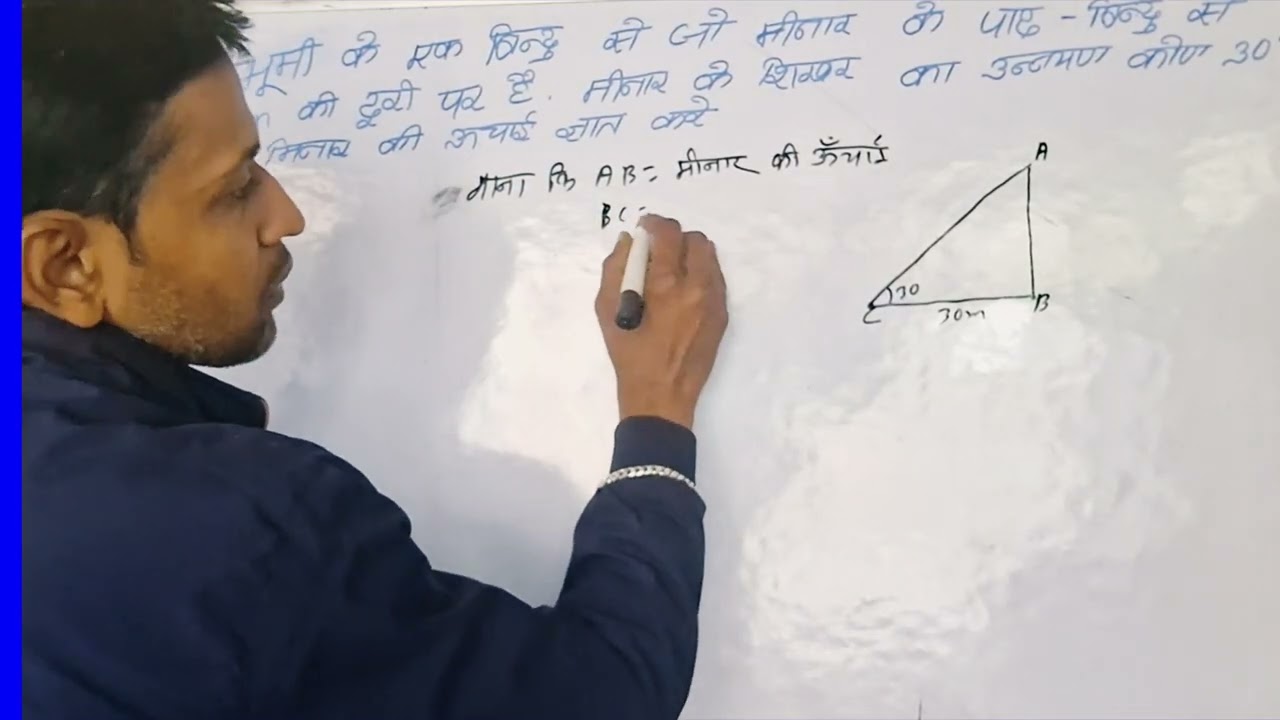 भूमी के एक बिन्दु से जो मीनार के पाद - बिन्दु से
की दूरी पर है. मीनार के शिखर का उन्नयण कोण 30°
मिनार की ऊचाई ज्ञात करे
माना कि AB = मीनार की ऊँचाई
BC =
A
30
C
30m
B